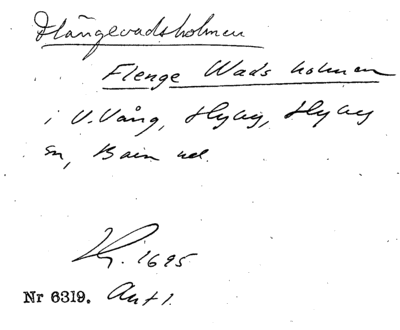 Flängevadsholmen
Flenge Wads holmen
i V. Vång, Hyby, Hyby
sn, Bara hd.
1695
Nr 6319. Ant 1.